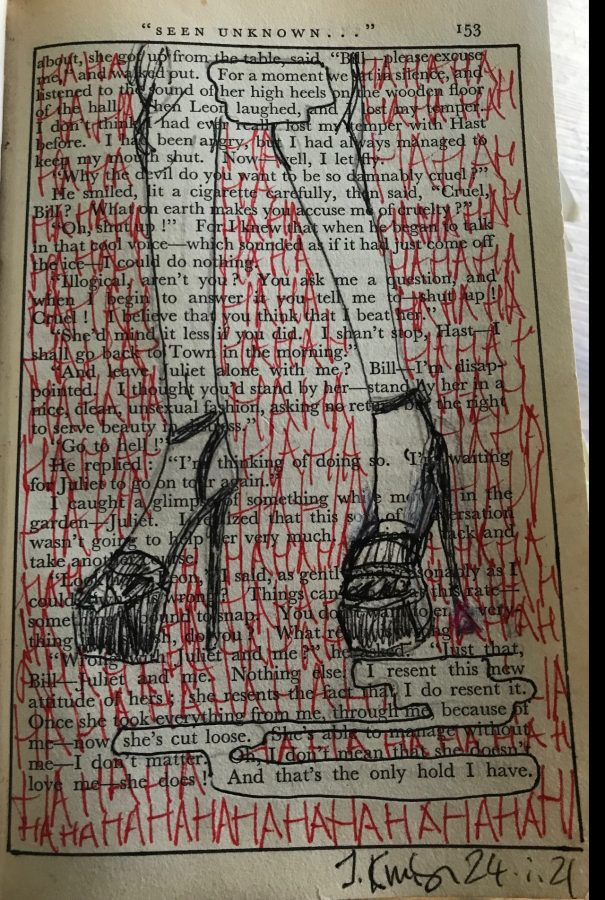 "SEEN UNKNOWN..." 153
about, she got up from the table, said, "Bill—please excuse
me," and walked out. For a moment we sat in silence, and
listened to the sound of her high heels on the wooden floor
of the hall. Then Leon laughed, and I lost my temper.
I don't think I had ever really lost my temper with Hast
before. I had been angry, but I had always managed to
keep my mouth shut. Now—well, I let fly.
"Why the devil do you want to be so damnably cruel?"
He smiled, lit a cigarette carefully, then said, "Cruel,
Bill? What on earth makes you accuse me of cruelty?"
"Oh, shut up!" For I knew that when he began to talk
in that cool voice—which sounded as if it had just come off
the ice—I could do nothing.
"Illogical, aren't you? You ask me a question, and
when I begin to answer it you tell me to—shut up!
Cruel! I believe that you think that I beat her."
"She'd mind it less if you did. I shan't stop, Hast—I
shall go back to Town in the morning."
"And leave Juliet alone with me? Bill—I'm disap-
pointed. I thought you'd stand by her—stand by her in a
nice, clean, unsexual fashion, asking no return but the right
to serve beauty in distress."
"Go to hell!"
He replied: "I'm thinking of doing so. I'm waiting
for Juliet to go on to again."
I caught a glimpse of something white in the
garden—Juliet. I realized that this sort of conversation
wasn't going to help her very much. tack and
take another course.
"Look Leon," I said, as gently reasonably as I
could, wrong? Things can this rate—
something bound to snap. You do want to very
thing do you? What
"Wrong Juliet and me?" he "Just that,
Bill—Juliet and me. Nothing else. I resent this new
attitude of hers; she resents the fact that I do resent it.
Once she took everything from me, through me, because of
me—now she's cut loose. She's able to manage without
me—I don't matter. Oh, I don't mean that she doesn't
love me—she does! And that's the only hold I have."
HAHAHAHAHAHAHAHAHAHAHAHAHA
24.i.21